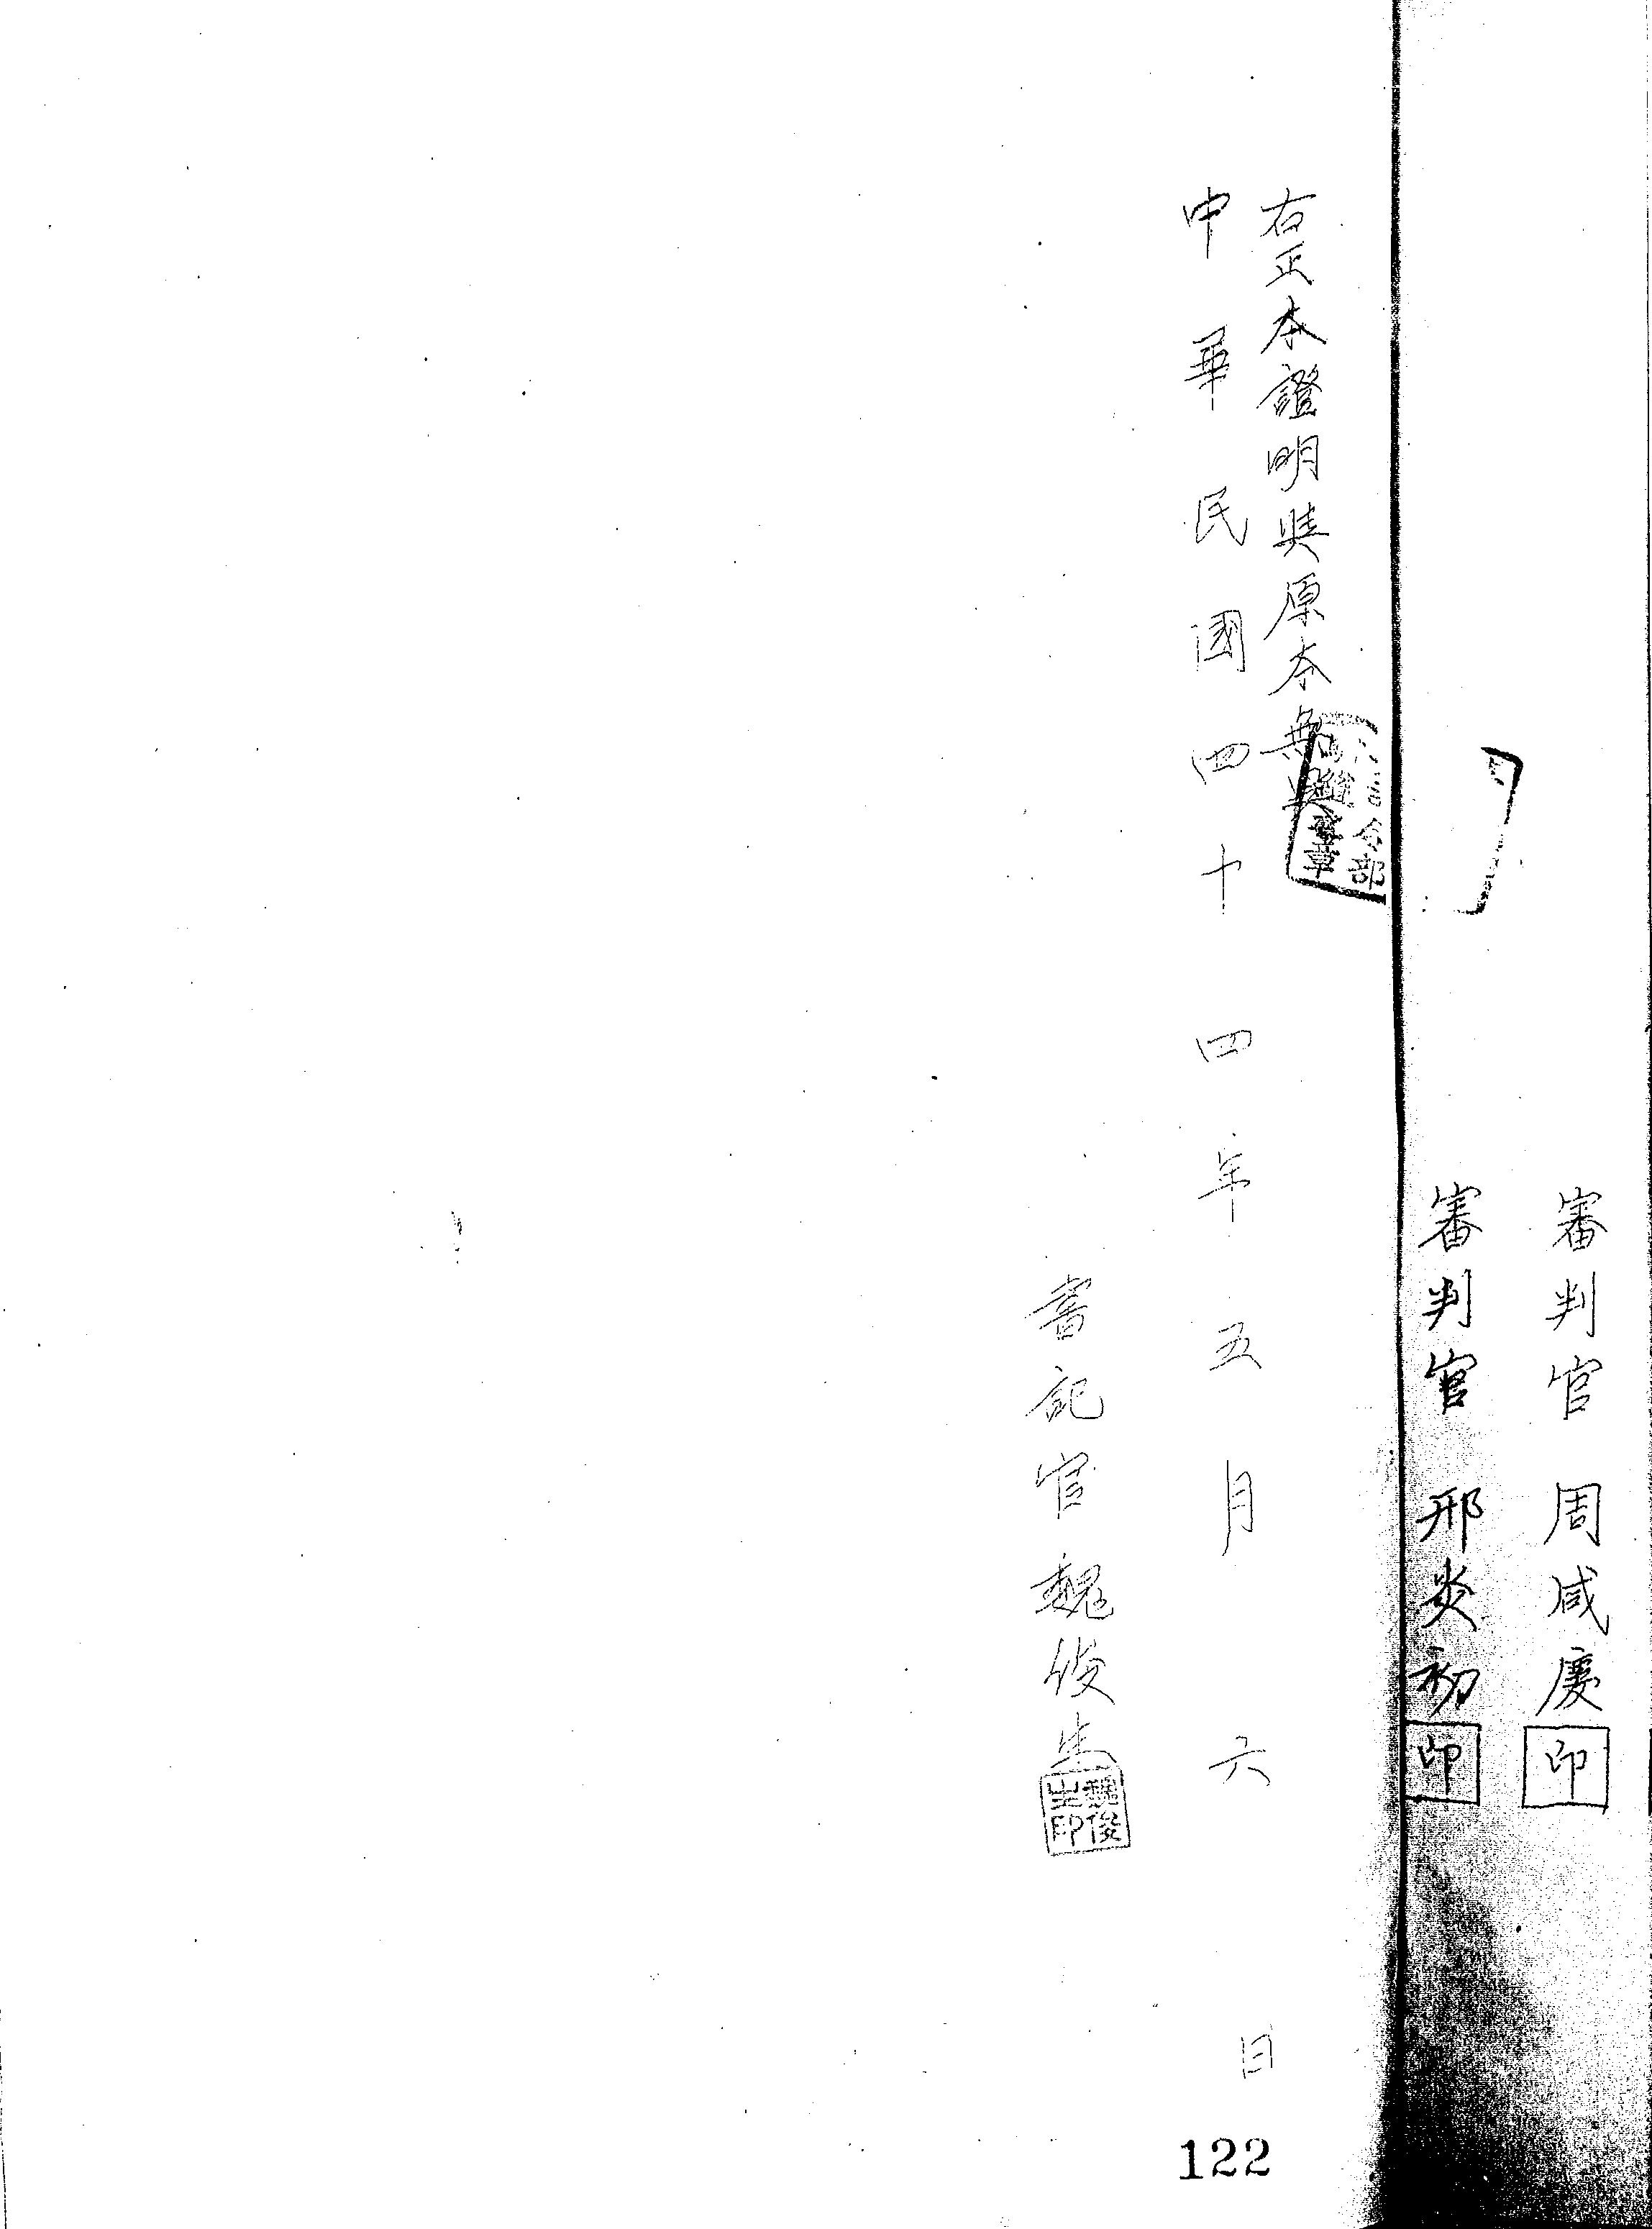 審判官 周咸慶 印
審判官 邢炎初 印
右正本證明與原本無異
令部
章
中華民國四十四年五月六日
書記官 魏俊生
魏俊生印
122